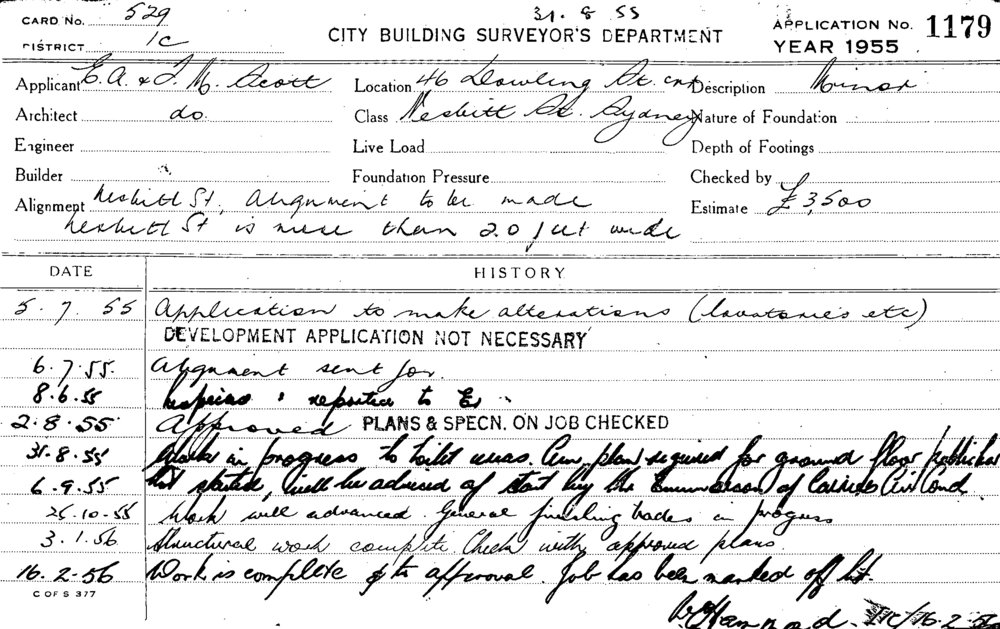 31.8.55
CARD No. 529
DISTRICT 1C
CITY BUILDING SURVEYOR'S DEPARTMENT
APPLICATION No. 1179
YEAR 1955
Applicant E. A. & F. M. Scott
Location 46 Dowling St. cnr
Description Minor
Architect do.
Class Nesbitt St. Sydney
Nature of Foundation
Engineer
Live Load
Depth of Footings
Builder
Foundation Pressure
Checked by
Alignment Nesbitt St. Alignment to be made
Estimate £3,500
Nesbitt St is more than 20 feet wide
DATE
HISTORY
5.7.55 Application to make alterations (lavatories etc)
DEVELOPMENT APPLICATION NOT NECESSARY
6.7.55. Alignment sent for.
8.6.55 reported to
2.8.55 Approved PLANS & SPECN. ON JOB CHECKED
31.8.55 Work in progress to toilet areas. plan required for ground floor
6.9.55 started, will be advised of start by Mr
25.10.55 Work well advanced. General finishing trades in progress
3.1.56 Structural work complete. Check with approved plans.
16.2.56 Work is complete & to approval. Job has been marked off
C OF S 377
16.2.56